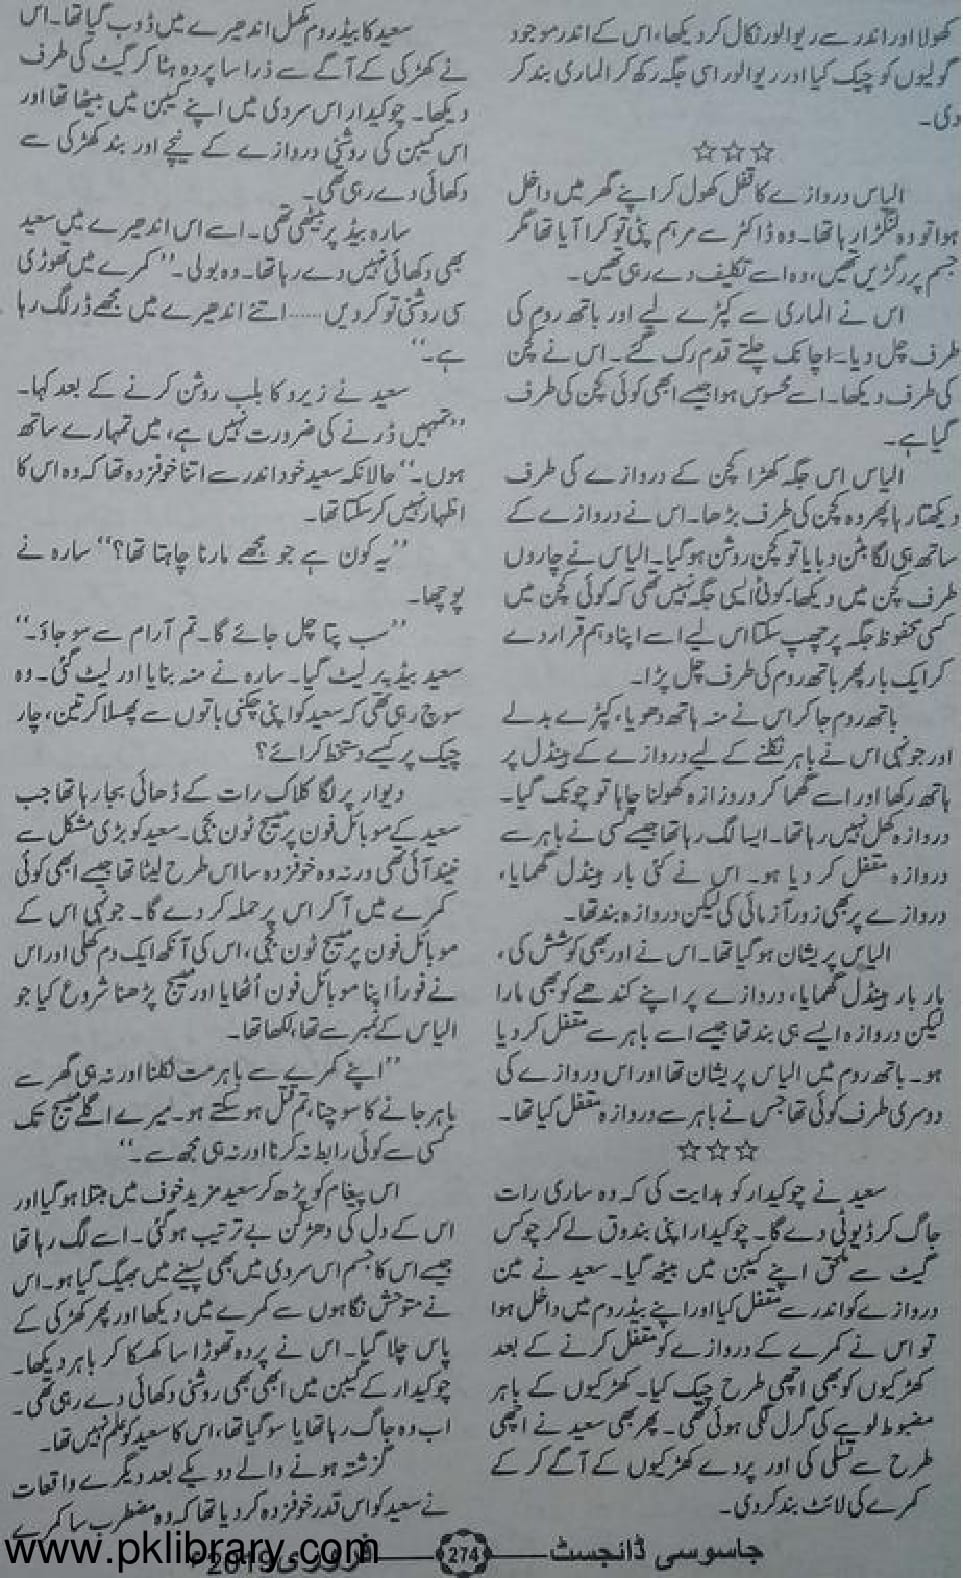 کھولا اور اندر سے ریوالور نکال کر دیکھا، اس کے اندر موجود
گولیوں کو چیک کیا اور ریوالور اسی جگہ رکھ کر الماری بند کر
دی۔
☆☆☆
الیاس دروازے کا قفل کھول کر اپنے گھر میں داخل
ہوا تو وہ لنگڑا رہا تھا۔ وہ ڈاکٹر سے مرہم پٹی تو کرا آیا تھا مگر
جسم پر رگڑیں تھیں، وہ اسے تکلیف دے رہی تھیں۔
اس نے الماری سے کپڑے لیے اور باتھ روم کی
طرف چل دیا۔ اچانک چلتے قدم رک گئے۔ اس نے کچن
کی طرف دیکھا۔ اسے محسوس ہوا جیسے ابھی کوئی کچن کی طرف
گیا ہے۔
الیاس اس جگہ کھڑا کچن کے دروازے کی طرف
دیکھتا رہا پھر وہ کچن کی طرف بڑھا۔ اس نے دروازے کے
ساتھ ہی لگا بٹن دبایا تو کچن روشن ہو گیا۔ الیاس نے چاروں
طرف کچن میں دیکھا، کوئی ایسی جگہ نہیں تھی کہ کوئی کچن میں
کسی محفوظ جگہ پر چھپ سکتا اس لیے اسے اپنا وہم قرار دے
کر ایک بار پھر باتھ روم کی طرف چل پڑا۔
باتھ روم جا کر اس نے منہ ہاتھ دھویا، کپڑے بدلے
اور جونہی اس نے باہر نکلنے کے لیے دروازے کے ہینڈل پر
ہاتھ رکھا اور اسے گھما کر دروازہ کھولنا چاہا تو چونک گیا۔
دروازہ کھل نہیں رہا تھا۔ ایسا لگ رہا تھا جیسے کسی نے باہر سے
دروازہ مقفل کر دیا ہو۔ اس نے کئی بار ہینڈل گھمایا،
دروازے پر بھی زور آزمائی کی لیکن دروازہ بند تھا۔
الیاس پریشان ہو گیا تھا۔ اس نے اور بھی کوشش کی،
بار بار ہینڈل گھمایا، دروازے پر اپنے کندھے کو بھی مارا
لیکن دروازہ ایسے ہی بند تھا جیسے اسے باہر سے مقفل کر دیا
ہو۔ باتھ روم میں الیاس پریشان تھا اور اس دروازے کی
دوسری طرف کوئی تھا جس نے باہر سے دروازہ مقفل کیا تھا۔
☆☆☆
سعید نے چوکیدار کو ہدایت کی کہ وہ ساری رات
جاگ کر ڈیوٹی دے گا۔ چوکیدار اپنی بندوق لے کر چوکس
گیٹ سے ملحق اپنے کیبن میں بیٹھ گیا۔ سعید نے مین
دروازے کو اندر سے مقفل کیا اور اپنے بیڈ روم میں داخل ہوا
تو اس نے کمرے کے دروازے کو مقفل کرنے کے بعد
کھڑکیوں کو بھی اچھی طرح چیک کیا۔ کھڑکیوں کے باہر
مضبوط لوہے کی گرل لگی ہوئی تھی۔ پھر بھی سعید نے اچھی
طرح سے تسلی کی اور پردے کھڑکیوں کے آگے کر کے
کمرے کی لائٹ بند کر دی۔
سعید کا بیڈ روم مکمل اندھیرے میں ڈوب گیا تھا۔ اس
نے کھڑکی کے آگے سے ذرا سا پردہ ہٹا کر گیٹ کی طرف
دیکھا۔ چوکیدار اس سردی میں اپنے کیبن میں بیٹھا تھا اور
اس کیبن کی روشنی دروازے کے نیچے اور بند کھڑکی سے
دکھائی دے رہی تھی۔
سارہ بیڈ پر بیٹھی تھی۔ اسے اس اندھیرے میں سعید
بھی دکھائی نہیں دے رہا تھا۔ وہ بولی۔ ’’کمرے میں تھوڑی
سی روشنی تو کر دیں...... اتنے اندھیرے میں مجھے ڈر لگ رہا
ہے۔‘‘
سعید نے زیرو کا بلب روشن کرنے کے بعد کہا۔
’’تمہیں ڈرنے کی ضرورت نہیں ہے، میں تمہارے ساتھ
ہوں۔‘‘ حالانکہ سعید خود اندر سے اتنا خوفزدہ تھا کہ وہ اس کا
اظہار نہیں کر سکتا تھا۔
’’یہ کون ہے جو مجھے مارنا چاہتا تھا؟‘‘ سارہ نے
پوچھا۔
’’سب پتا چل جائے گا۔ تم آرام سے سو جاؤ۔‘‘
سعید بیڈ پر لیٹ گیا۔ سارہ نے منہ بنایا اور لیٹ گئی۔ وہ
سوچ رہی تھی کہ سعید کو اپنی چکنی باتوں سے پھسلا کر تین، چار
چیک پر کیسے دستخط کرائے؟
دیوار پر لگا کلاک رات کے ڈھائی بجا رہا تھا جب
سعید کے موبائل فون پر میسج ٹون بجی۔ سعید کو بڑی مشکل سے
نیند آئی تھی ورنہ وہ خوفزدہ سا اس طرح لیٹا تھا جیسے ابھی کوئی
کمرے میں آ کر اس پر حملہ کر دے گا۔ جونہی اس کے
موبائل فون پر میسج ٹون بجی، اس کی آنکھ ایک دم کھلی اور اس
نے فوراً اپنا موبائل فون اُٹھایا اور میسج پڑھنا شروع کیا جو
الیاس کے نمبر سے تھا، لکھا تھا۔
’’اپنے کمرے سے باہر مت نکلنا اور نہ ہی گھر سے
باہر جانے کا سوچنا، تم قتل ہو سکتے ہو۔ میرے اگلے میسج تک
کسی سے کوئی رابطہ نہ کرنا اور نہ ہی مجھ سے۔‘‘
اس پیغام کو پڑھ کر سعید مزید خوف میں مبتلا ہو گیا اور
اس کے دل کی دھڑکن بے ترتیب ہو گئی۔ اسے لگ رہا تھا
جیسے اس کا جسم اس سردی میں بھی پسینے میں بھیگ گیا ہو۔ اس
نے متوحش نگاہوں سے کمرے میں دیکھا اور پھر کھڑکی کے
پاس چلا گیا۔ اس نے پردہ تھوڑا سا کھسکا کر باہر دیکھا۔
چوکیدار کے کیبن میں ابھی بھی روشنی دکھائی دے رہی تھی۔
اب وہ جاگ رہا تھا یا سو گیا تھا، اس کا سعید کو علم نہیں تھا۔
گزشتہ ہونے والے دو یکے بعد دیگرے واقعات
نے سعید کو اس قدر خوفزدہ کر دیا تھا کہ وہ مضطرب سا کمرے
جاسوسی ڈائجسٹ 274 فروری 2019ء
www.pklibrary.com